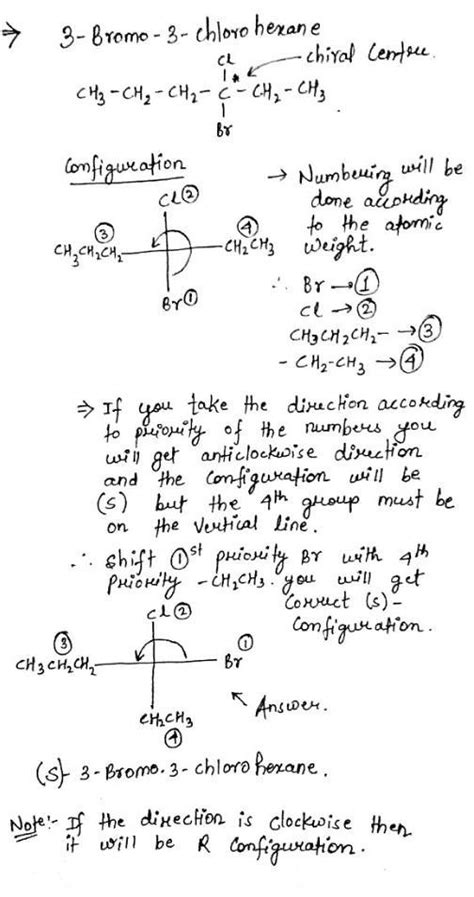 ⇒ 3-Bromo-3-chlorohexane
Cl
chiral Centre.
CH3-CH2-CH2-C*-CH2-CH3
Br
Configuration
→ Numbering will be
done according
to the atomic
weight.
Cl②
③
CH3CH2CH2-
④
-CH2CH3
Br①
∴ Br →①
Cl →②
CH3CH2CH2- →③
-CH2-CH3 →④
⇒ If you take the direction according
to priority of the numbers you
will get anticlockwise direction
and the configuration will be
(S) but the 4th group must be
on the vertical line.
∴ Shift ①st priority Br with 4th
priority -CH2CH3. you will get
Correct (S)-
Configuration.
Cl②
③
CH3CH2CH2
①
Br
Answer.
CH2CH3
④
(S)- 3-Bromo-3-chlorohexane.
Note:- If the direction is clockwise then
it will be R Configuration.